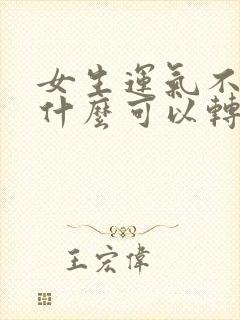 女生運氣不
什麼可以轉
王宏偉